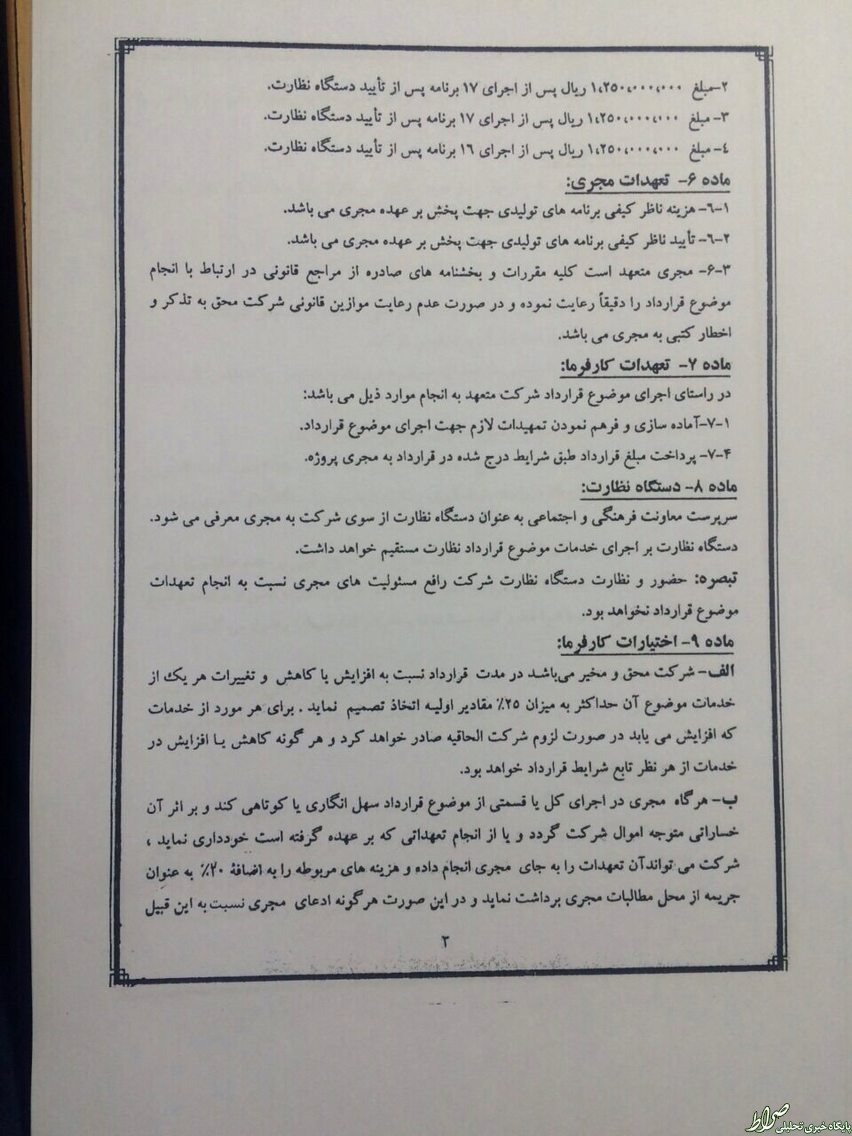 ۲-مبلغ ۱،۲۵۰،۰۰۰،۰۰۰ ریال پس از اجرای ۱۷ برنامه پس از تأیید دستگاه نظارت.
۳- مبلغ ۱،۲۵۰،۰۰۰،۰۰۰ ریال پس از اجرای ۱۷ برنامه پس از تأیید دستگاه نظارت.
۴- مبلغ ۱،۲۵۰،۰۰۰،۰۰۰ ریال پس از اجرای ۱۶ برنامه پس از تأیید دستگاه نظارت.
ماده ۶- تعهدات مجری:
۶-۱- هزینه ناظر کیفی برنامه های تولیدی جهت پخش بر عهده مجری می باشد.
۶-۲- تأیید ناظر کیفی برنامه های تولیدی جهت پخش بر عهده مجری می باشد.
۶-۳- مجری متعهد است کلیه مقررات و بخشنامه های صادره از مراجع قانونی در ارتباط با انجام
موضوع قرارداد را دقیقاً رعایت نموده و در صورت عدم رعایت موازین قانونی شرکت محق به تذکر و
اخطار کتبی به مجری می باشد.
ماده ۷- تعهدات کارفرما:
در راستای اجرای موضوع قرارداد شرکت متعهد به انجام موارد ذیل می باشد:
۷-۱-آماده سازی و فرهم نمودن تمهیدات لازم جهت اجرای موضوع قرارداد.
۷-۴- پرداخت مبلغ قرارداد طبق شرایط درج شده در قرارداد به مجری پروژه.
ماده ۸- دستگاه نظارت:
سرپرست معاونت فرهنگی و اجتماعی به عنوان دستگاه نظارت از سوی شرکت به مجری معرفی می شود.
دستگاه نظارت بر اجرای خدمات موضوع قرارداد نظارت مستقیم خواهد داشت.
تبصره: حضور و نظارت دستگاه نظارت شرکت رافع مسئولیت های مجری نسبت به انجام تعهدات
موضوع قرارداد نخواهد بود.
ماده ۹- اختیارات کارفرما:
الف- شرکت محق و مخیر می‌باشد در مدت قرارداد نسبت به افزایش یا کاهش و تغییرات هر یک از
خدمات موضوع آن حداکثر به میزان ۲۵٪ مقادیر اولیه اتخاذ تصمیم نماید . برای هر مورد از خدمات
که افزایش می یابد در صورت لزوم شرکت الحاقیه صادر خواهد کرد و هر گونه کاهش یا افزایش در
خدمات از هر نظر تابع شرایط قرارداد خواهد بود.
ب- هرگاه مجری در اجرای کل یا قسمتی از موضوع قرارداد سهل انگاری یا کوتاهی کند و بر اثر آن
خساراتی متوجه اموال شرکت گردد و یا از انجام تعهداتی که بر عهده گرفته است خودداری نماید ،
شرکت می تواندآن تعهدات را به جای مجری انجام داده و هزینه های مربوطه را به اضافۀ ۲۰٪ به عنوان
جریمه از محل مطالبات مجری برداشت نماید و در این صورت هرگونه ادعای مجری نسبت به این قبیل
۳
صراط
پایگاه خبری تحلیلی